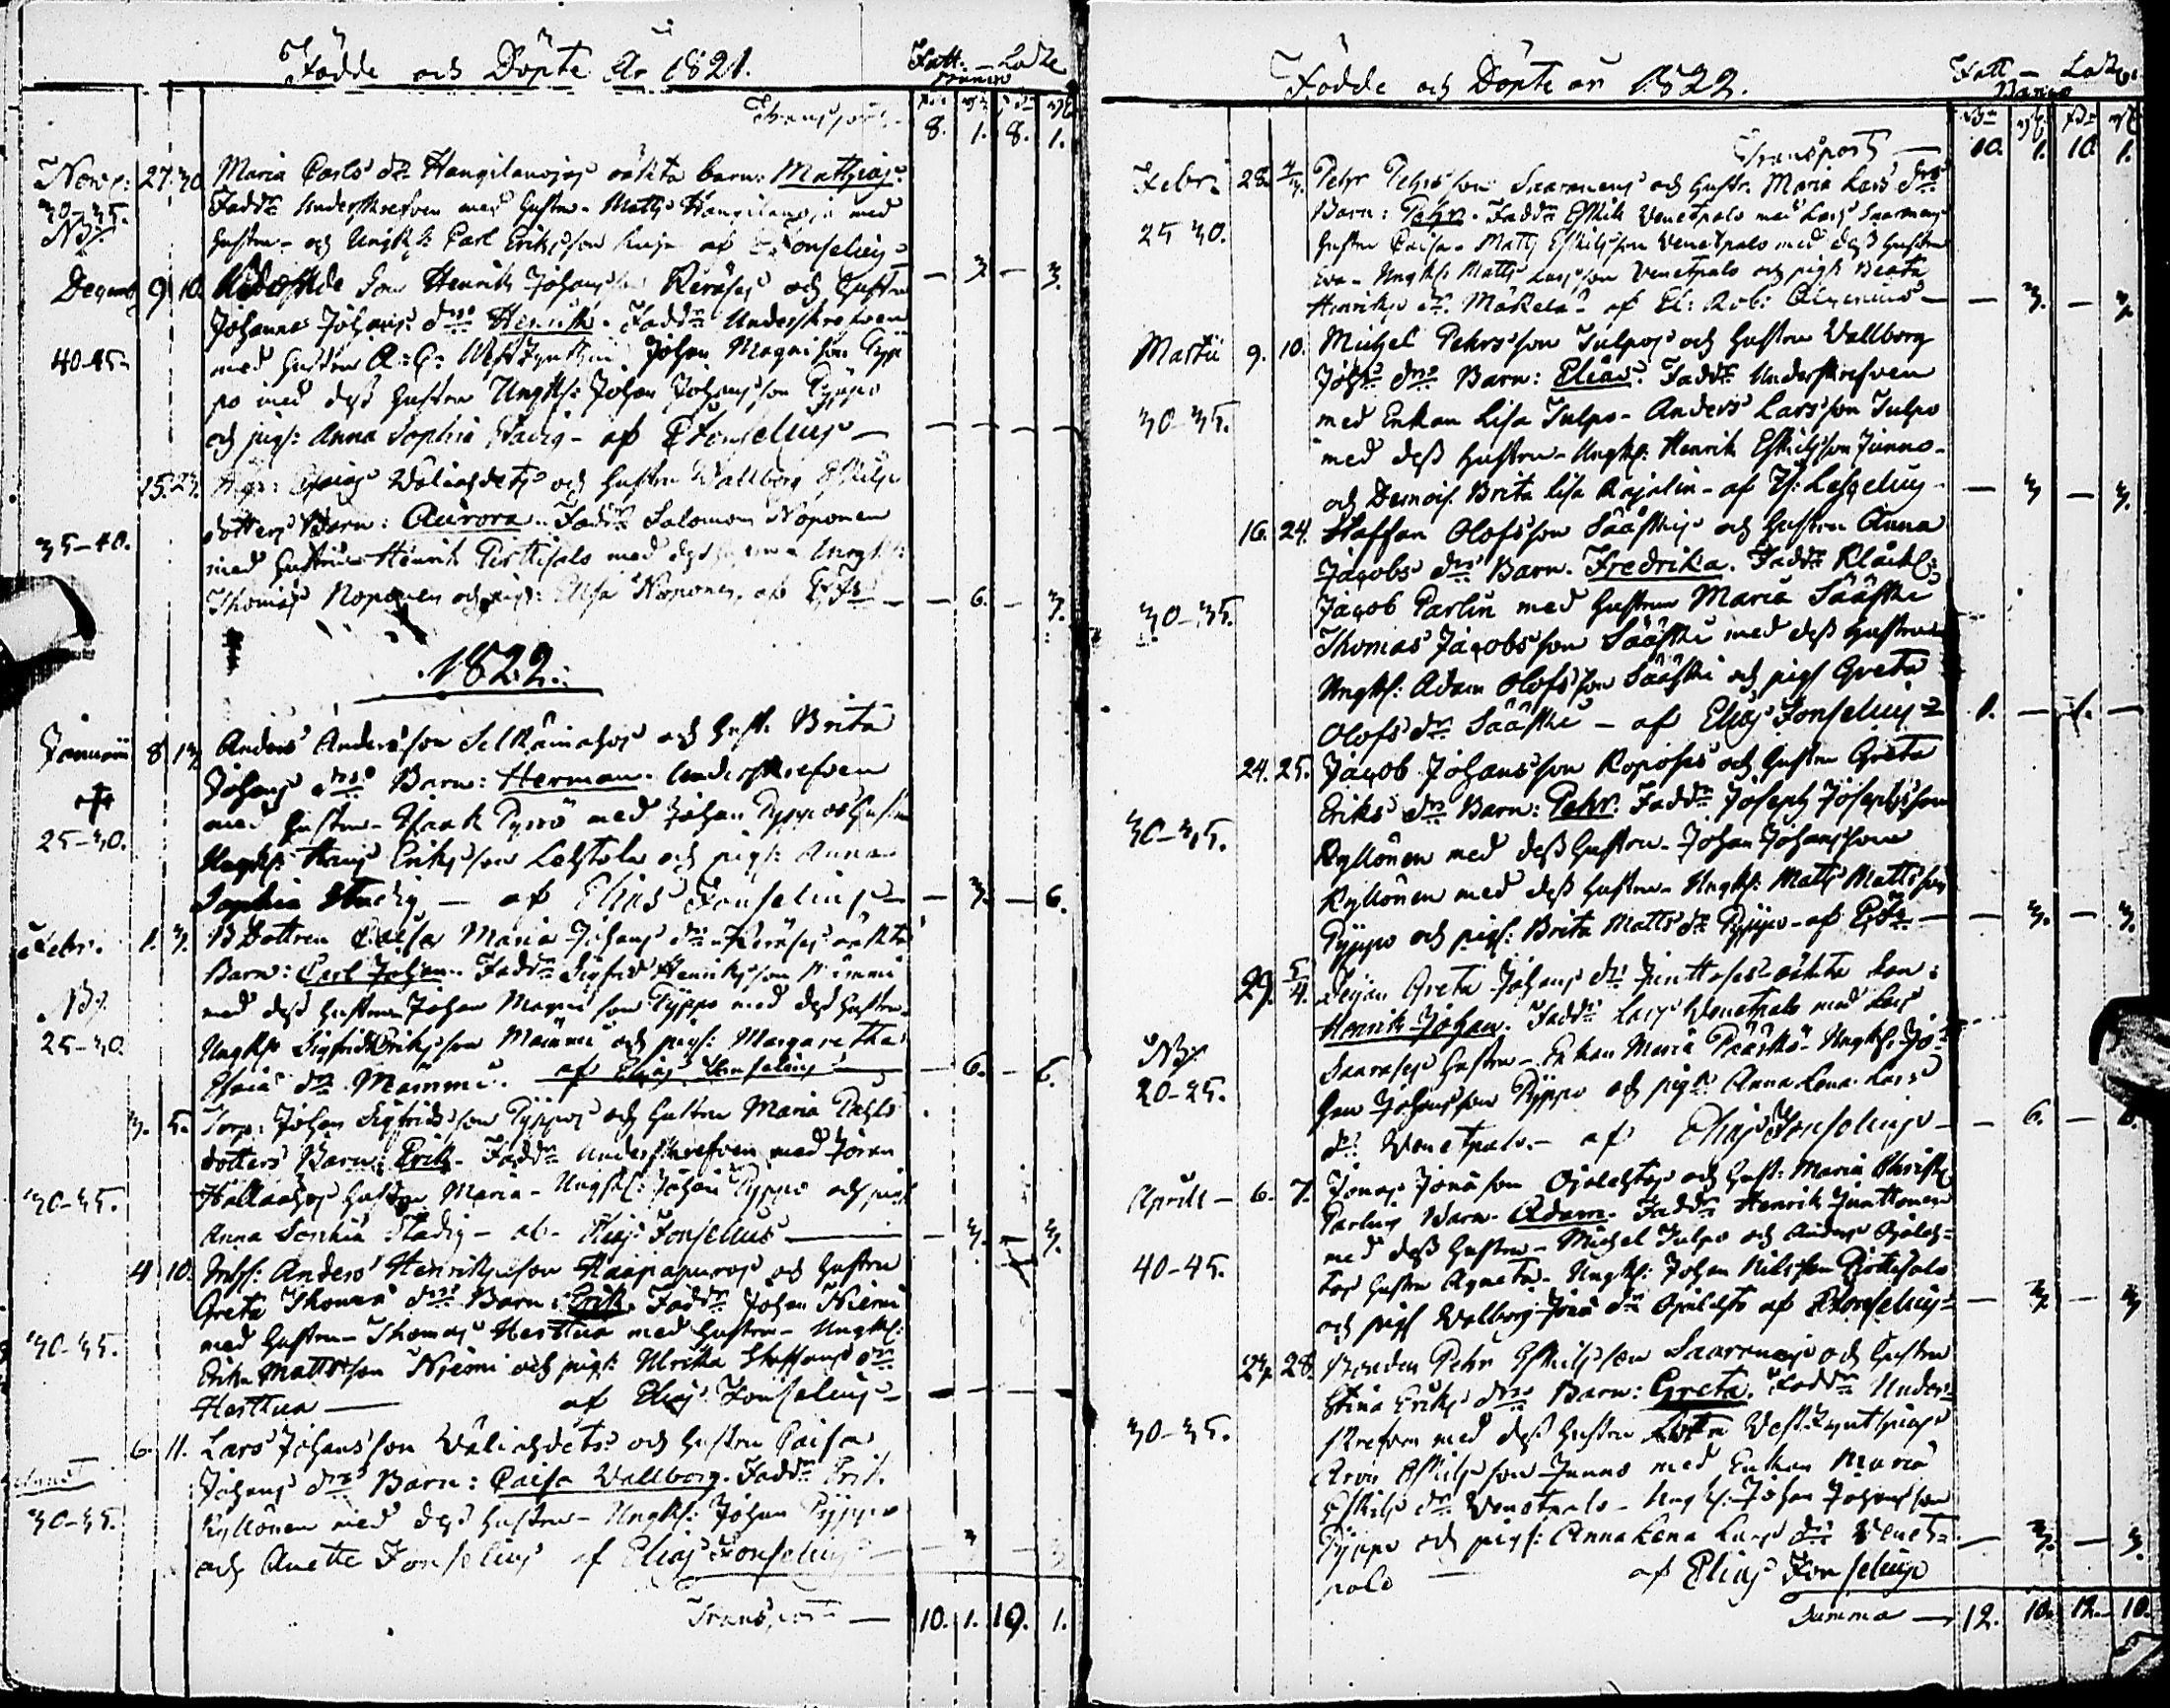 Födde och Döpte År 1821.
Fatt. – Lådze
Transport –
8. 1. 8. 1.
Novr: 27. 30. Maria Carls dr Kangilanojas oäkta barn: Mathias.
30–35. Faddr Underskrefven med hustru – Matts Kangilanoja med
hustru – och Ungk: Carl Eriksson af Fonselius – 3. – 3.
Decemb 9. 10. Son Henrik Johansson Keräses och hustru
Johanna Johans drs Henrik. Faddr Underskrefven
40–45. med hustru Johan Magnison Pyp
po med dess hustru Ungk: Johan Johansson Pyppo
och pig: Anna Sophia Stadig – af E Fonselius –
15. 23. Wäliahdets och hustru Wallborg Eskils
dotters Barn: Aurora. Faddr Salomon Noponen
35–40. med hustru Henrik Perttisalo med
Thomas Noponen och pig: Elsa Noponen, af – 6. – 3.
1822.
Januarii 8 13 Anders Andersson Selkämahos och hust. Brita
Johans drs Barn: Herman. Underskrefven
25–30. med hustru – Isaak Pyrrö med Johan Pyppos hustru
Ungk: Hans Eriksson Lehtola och pig: Anna
Sophia Stadig – af Elias Fonselius – 3. – 6.
Febr. 1. 3. BDottren Caisa Maria Johans dr Keräses oäkta
Barn: Carl Johan. Faddr Sigfrid Henriksson Mämmi
NB. med dess hustru Johan Magnison Pyppo med dess hustru
25–30. Ungk: Sigfrid Eriksson Mämmi och pig: Margaretha
Esaia dr Mämmi. af Elias Fonselius – 6. – 6.
3. 5. Torp: Johan Sigfridsson Pyppos och hustru Maria Pehrs
dotters Barn: Erik. Faddr Underskrefven med Jöran
30–35. Hallaahos hustru Maria – Ungk: Johan Pyppo och pig
Anna Sophia Stadig – af Elias Fonselius – 3. – 3.
4 10. Inhs: Anders Henriksson Haapapuros och hustru
Greta Thomas drs Barn: Erik. Faddr Johan Niemi
30–35. med hustru – Thomas Herttua med hustru – Ungk:
Erik Mattsson Niemi och pig: Ulrika Staffans dr
Herttua – af Elias Fonselius –
6. 11. Lars Johansson Wäliahdets och hustru Caisa
Johans drs Barn: Caisa Wallborg. Faddr Erik
30–35. Kyllönen med dess hustru – Ungk: Johan Pyppo
och Anette Fonselius af Elias Fonselius – 3 – 3
Transport – 10. 1. 10. 1.
Födde och Döpte år 1822.
Fatt – Lådze
Transport – 10. 1. 10. 1.
Febr: 28. 4/3. Pehr Pehrsson Saarenens och hustr. Maria Lars drs
25 30. Barn: Pehr. Faddr Eskil Venetpalo med Lars Saarenens
hustru Caisa – Matts Eskilsson Venetpalo med dess hustru
Eva – Ungk: Matts Larsson Venetpalo och pig: Beata
Henriks dr Mäkelä – af El: Rob: Alcenius – – 3. – 3
Martii 9. 10. Michel Pehrsson Tulpos och hustru Wallborg
Johs drs Barn: Elias. Faddr Underskrefven
30–35. med Enkan Lisa Tulpo – Anders Larsson Tulpo
med dess hustru – Ungk: Henrik Eskilsson Junno –
och Demois. Brita Lisa Rajalin – af – 3 – 3.
16. 24. Staffan Olofsson Sääskis och hustru Anna
Jacobs drs Barn. Fredrika. Faddr Klåck:
30–35. Jacob Carlin med hustru Maria Sääski
Thomas Jacobsson Sääski med dess hustru
Ungk: Adam Olofsson Sääski och pig Greta
Olofs dr Sääski – af Elias Fonselius 1. – 1. –
24. 25. Jacob Johansson Koposes och hustru Greta
Eriks drs Barn: Pehr. Faddr Joseph Josephsson
30–35. Kyllönen med dess hustru – Johan Johansson
Kyllönen med dess hustru – Ungk: Matts Mattsson
Pyppo och pig: Brita Matts dr Pyppo – af – 3. – 3.
29. 5/4. Pigan Greta Johans drs Junttoses oäkta Son:
Henrik Johan. Faddr Lars Venetpalo med Lars
NB. Saareses hustru – Enkan Maria Pääskö – Ungk: Jo-
20–25. han Johansson Pyppo och pig: Anna Lena Lars
dr Venetpalo. – af Elias Fonselius – – 6. – 6.
Aprill – 6. 7. Jonas Jonasson Ojalehtos och hust: Maria Christ.
Carlins Barn. Adam. Faddr Henrik Junttonen
40–45. med dess hustru – Michel Tulpo och Anders Ojaleh-
tos hustru Agneta – Ungk: Johan Nilsson Pirttisalo
och pig Walborg Jona dr Ojalehto af E Fonselius – 3. – 3
27. 28. Bonden Pehr Eskilsson Saarenens och hustru
Stina Eriks drs Barn: Greta. Faddr Under-
30–35. skrefven med dess hustru
Aron Eskilsson Junno med Enkan Maria
Eskils dr Venetpalo – Ungk: Johan Johansson
Pyppo och pig: Anna Lena Lars drs Venet- – 3. – 3.
palo af Elias Fonselius
Summa – 12. 10. 12. 10.